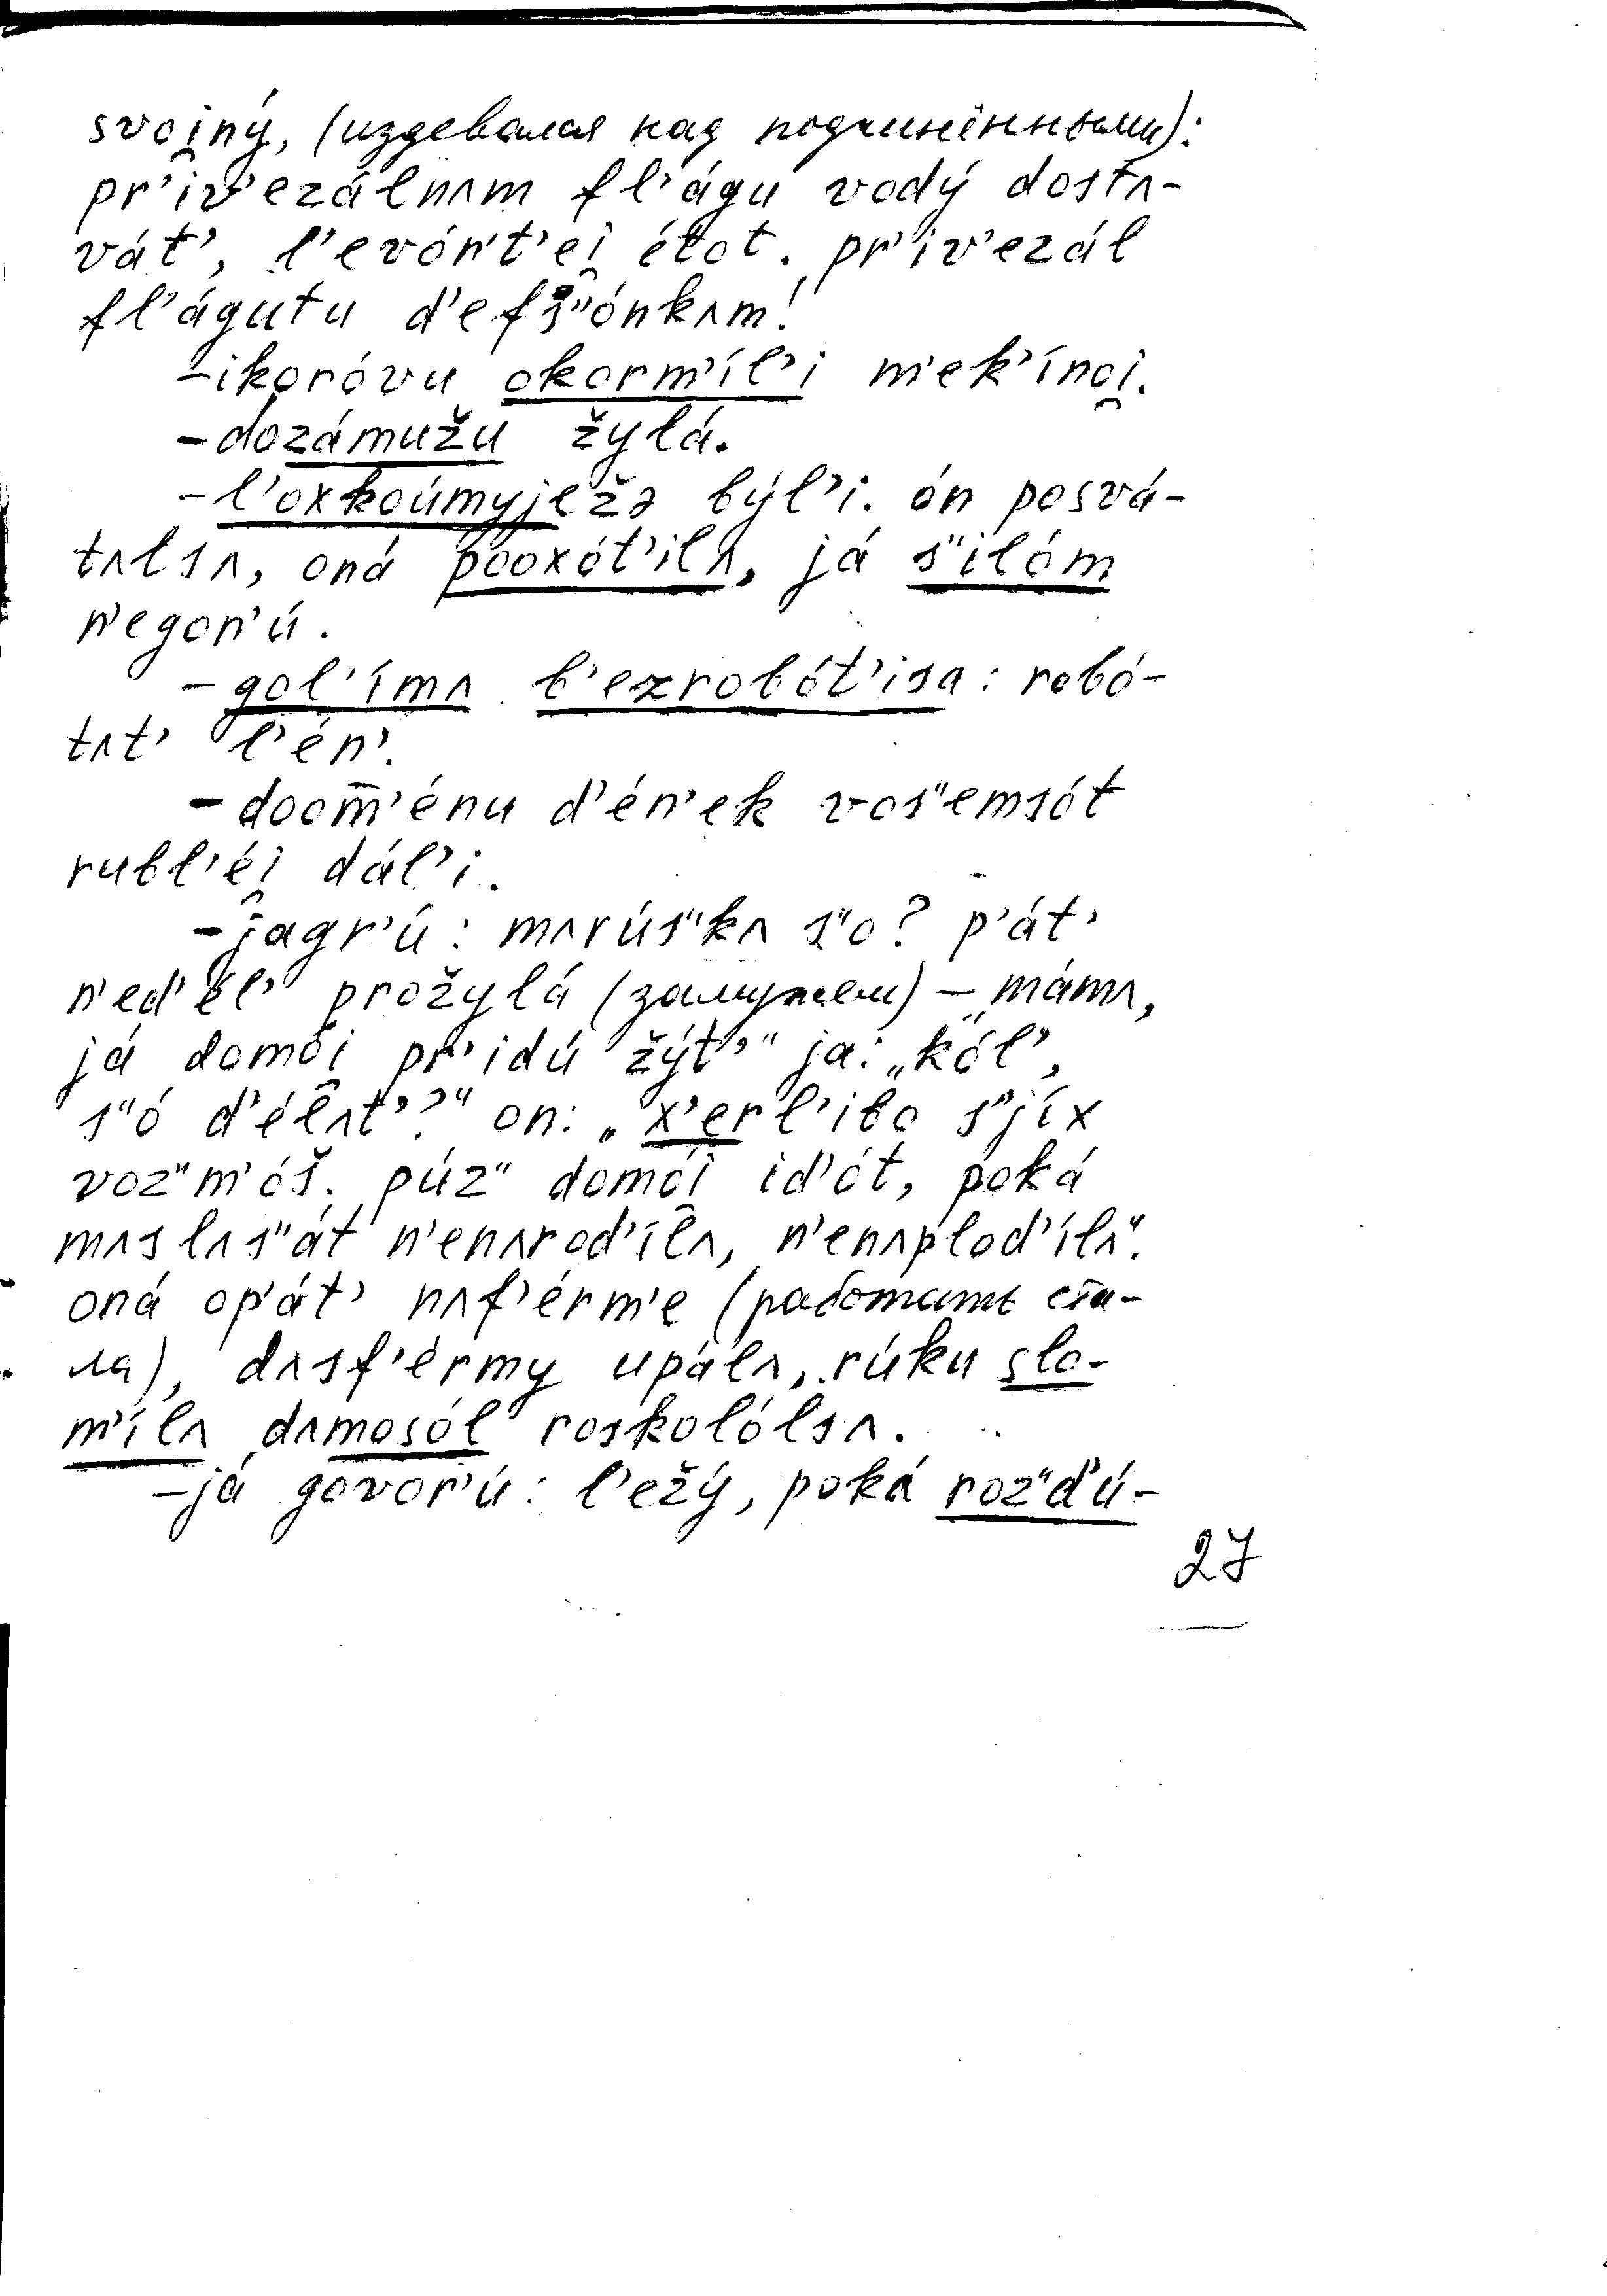 svoi̯ný, (издевался над подчинёнными):
pr’iv’ezálnʌm fl’águ vodý dostʌ-
vát’, l’evón’t’ei̯ étot. pr’iv’ezál
fl’águtu d’efs̎ónkʌm!
-ikoróvu okorm’íl’i m’ek’ínoi̯.
-dozámužu žylá.
-l’oxkoúmyježə býl’i. ón posvá-
tʌlsʌ, oná pooxót’ilʌ, já s̎ilóm
n’egon’ú.
-gol’ímʌ b’ezrobót’isa: robó-
tʌt’ l’én’.
-doom̄’énu d’én’ek vos̎emsót
rubl’éi̯ dál’i.
-jagr’ú: mʌrús̎kʌ s̎o? p’át’
n’ed’él’ prožylá (замужем) – „mámʌ,
já domói̯ pr’idú žýt’“ ja: „kól’,
s̎ó d’élʌt’?“ on: „x’erl’ibo s̎jíx
voz̎m’óš. púz̎ domói̯ id’ót, poká
mʌslʌs̎át n’enʌrod’ílʌ, n’enʌplod’ílʌ“.
oná op’át’ nʌf’érm’e (работать ста-
ла), dʌsf’érmy upálʌ, rúku slo-
m’ílʌ dʌmosól roskolólsʌ.
-já govor’ú: l’ežý, poká roz̎d’ú-
27